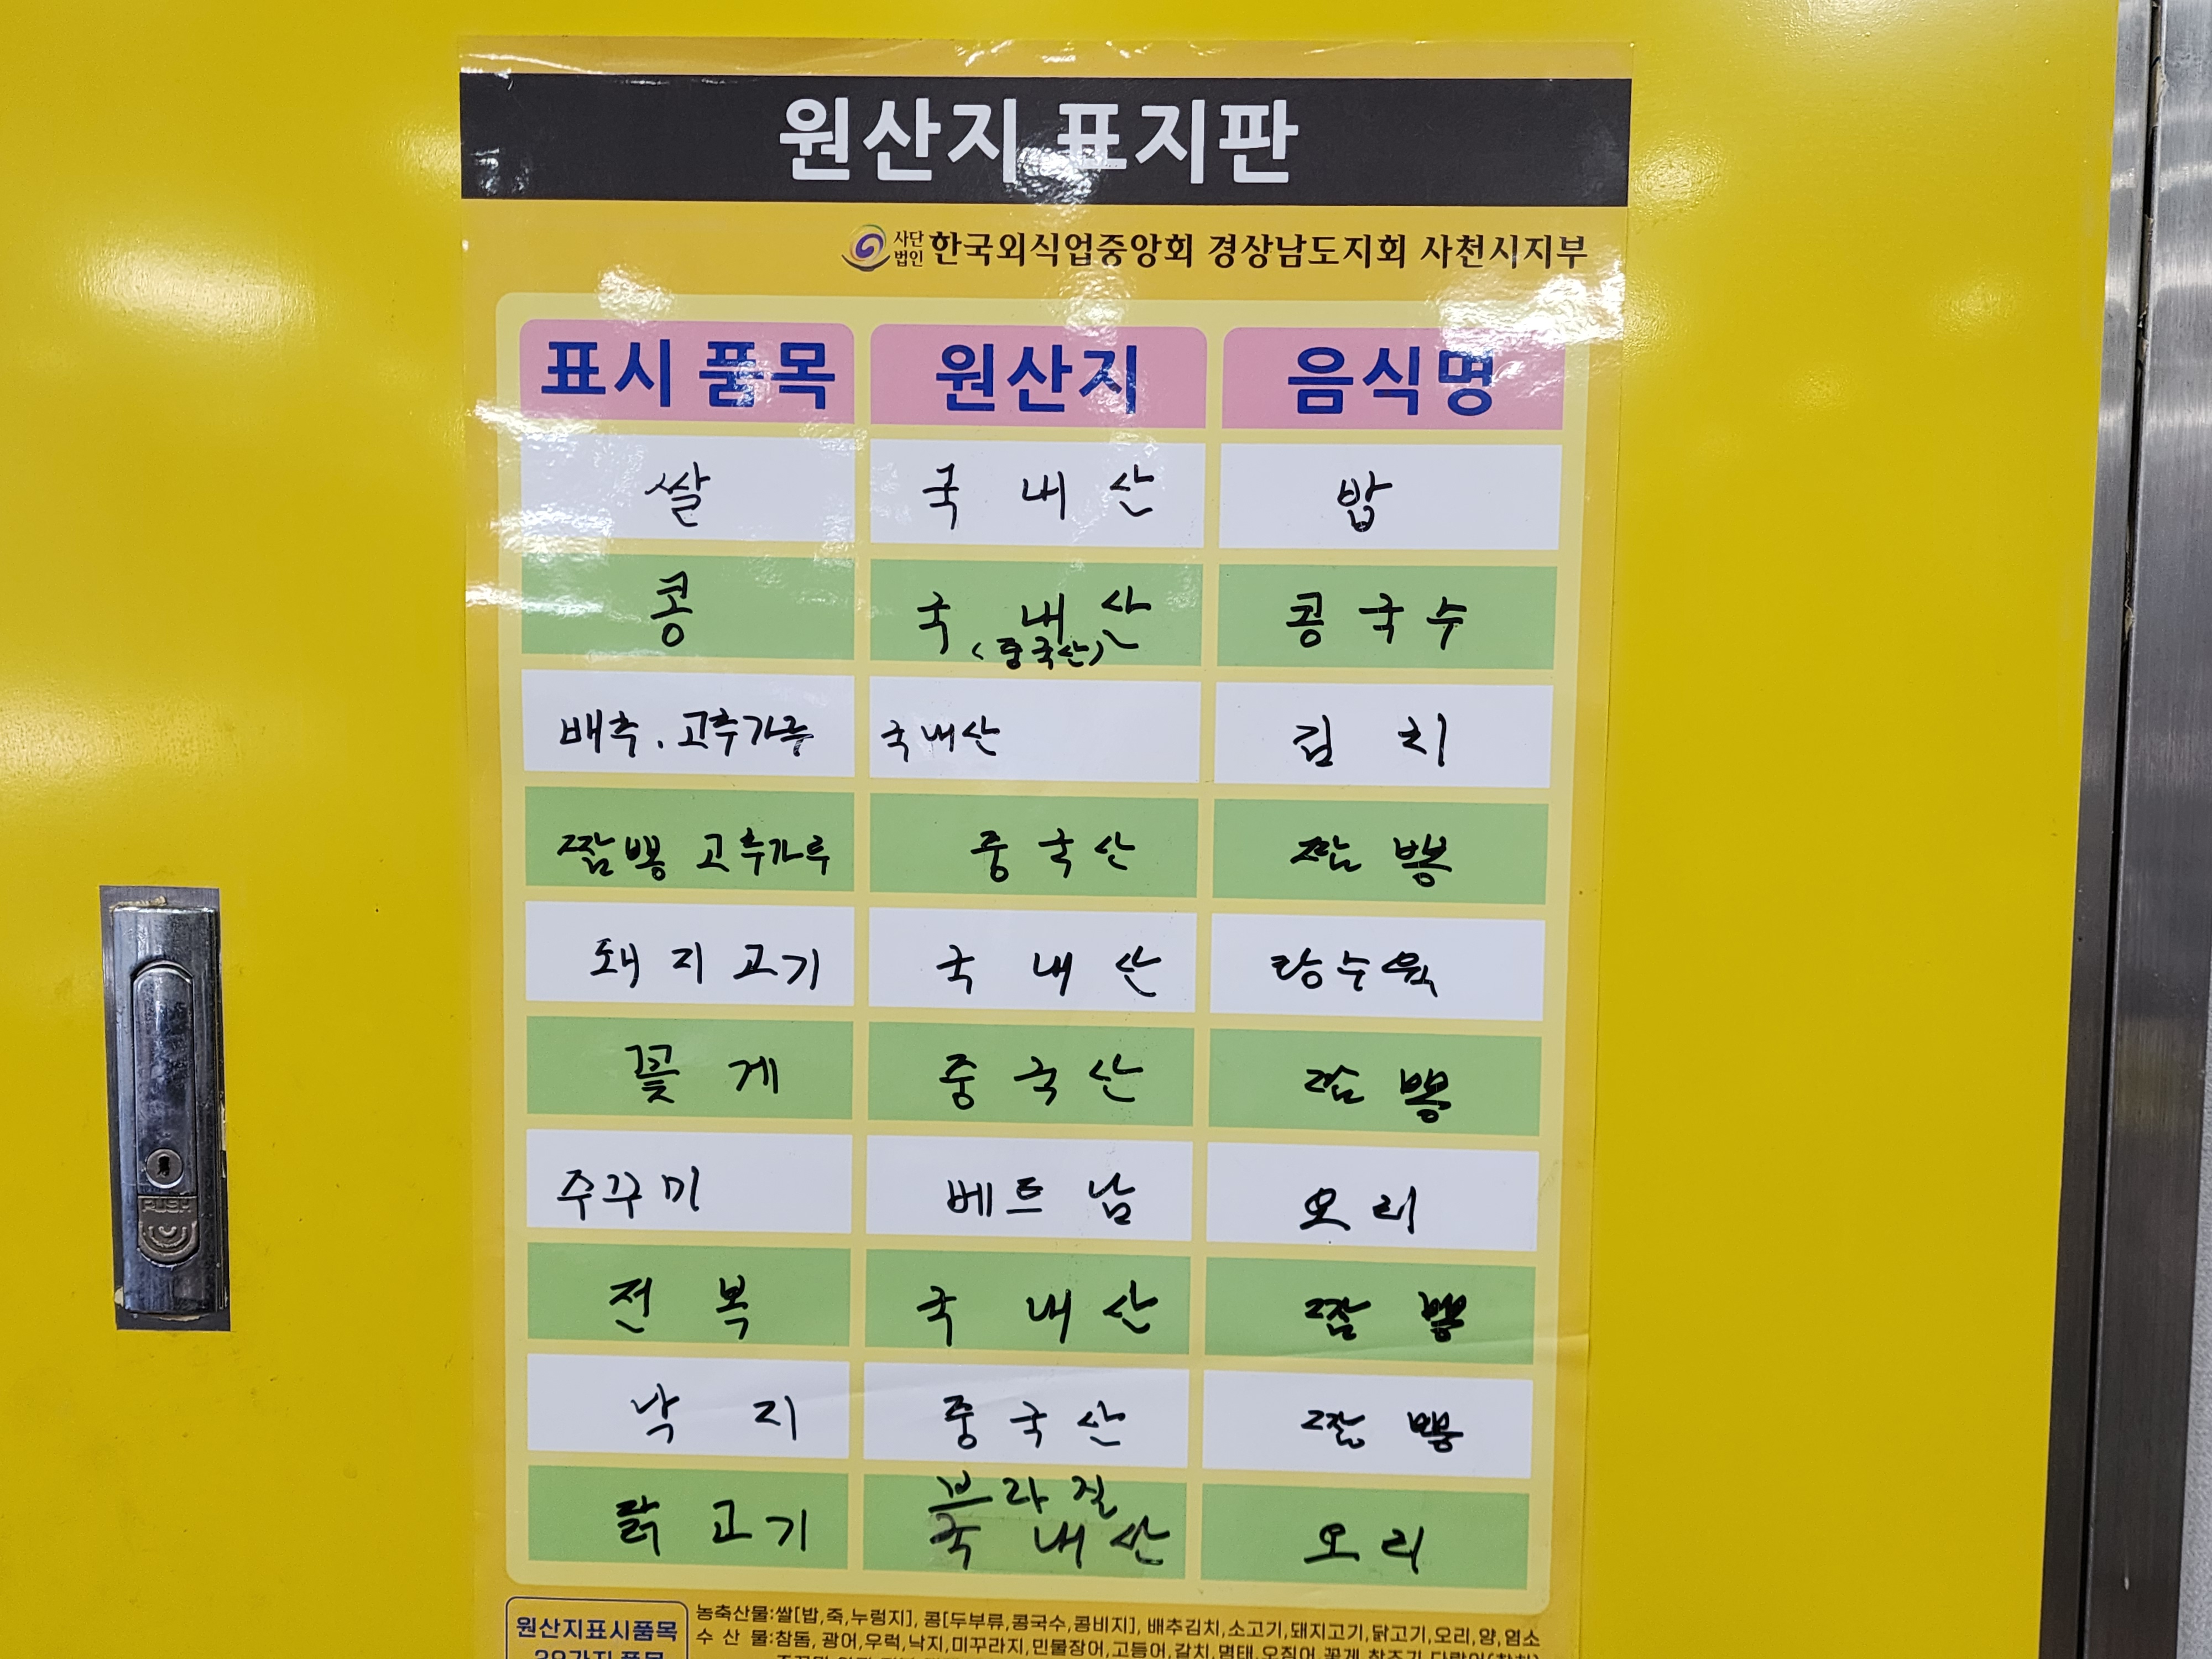 원산지 표지판
사단법인 한국외식업중앙회 경상남도지회 사천시지부
표시 품목 원산지 음식명
쌀 국내산 밥
콩 국내산 콩국수
(중국산)
배추, 고추가루 국내산 김치
짬뽕 고추가루 중국산 짬뽕
돼지고기 국내산 탕수육
꽃게 중국산 짬뽕
주꾸미 베트남 요리
전복 국내산 짬뽕
낙지 중국산 짬뽕
브라질
닭고기 국내산 요리
원산지표시품목
농축산물:쌀[밥,죽,누렁지], 콩[두부류,콩국수,콩비지], 배추김치,소고기,돼지고기,닭고기,오리,양,염소
수 산 물:참돔, 광어,우럭,낙지,미꾸라지,민물장어,고등어,갈치,명태,오징어,꽃게,참조기
PUSH